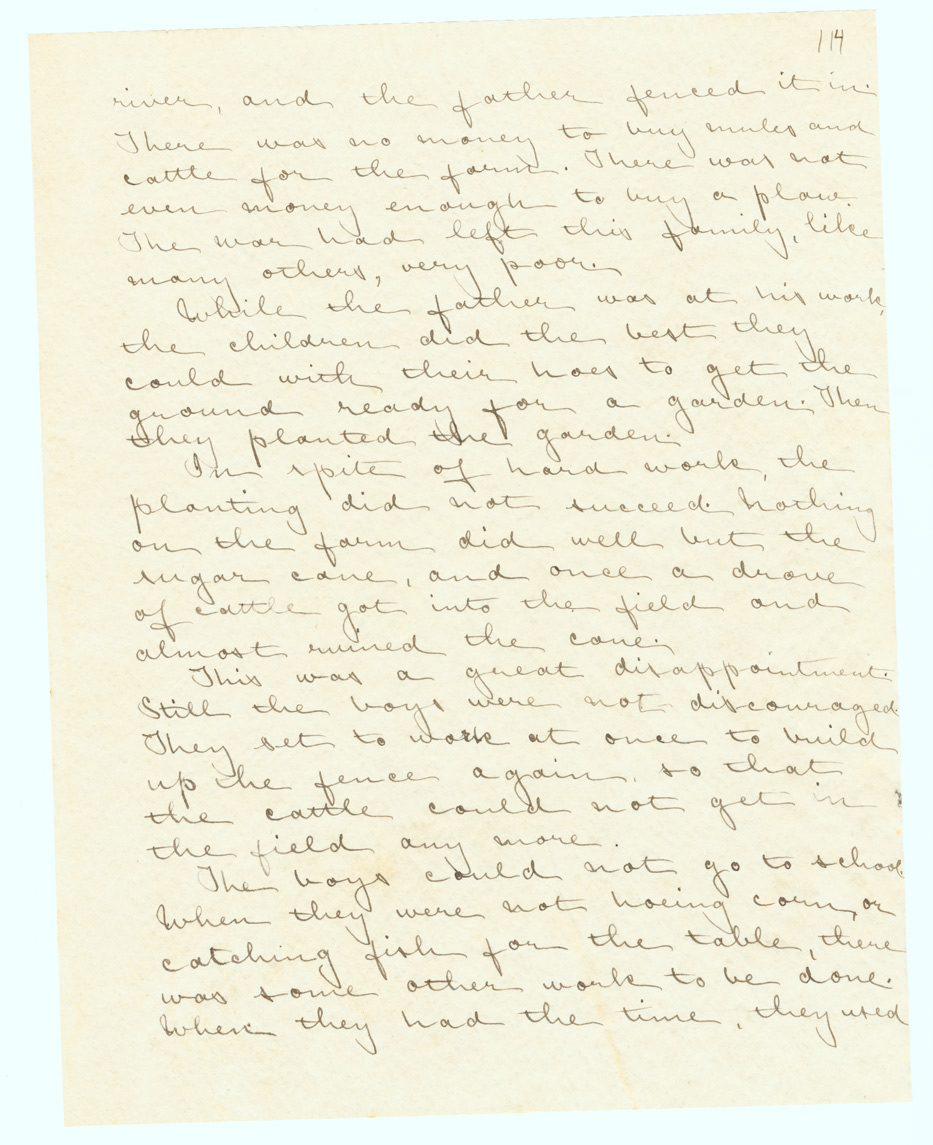 114
river, and the father fenced it in.
There was no money to buy mules and
cattle for the farm. There was not
even money enough to buy a plow.
The war had left this family, like
many others, very poor.
While the father was at his work,
the children did the best they
could with their hoes to get the
ground ready for a garden. Then
they planted the garden.
In spite of hard work, the
planting did not succeed. Nothing
on the farm did well but the
sugar cane, and once a drove
of cattle got into the field and
almost ruined the cane.
This was a great disappointment.
Still the boys were not discouraged.
They set to work at once to build
up the fence again, so that
the cattle could not get in
the field any more.
The boys could not go to school.
When they were not hoeing corn, or
catching fish for the table, there
was some other work to be done.
When they had the time, they used